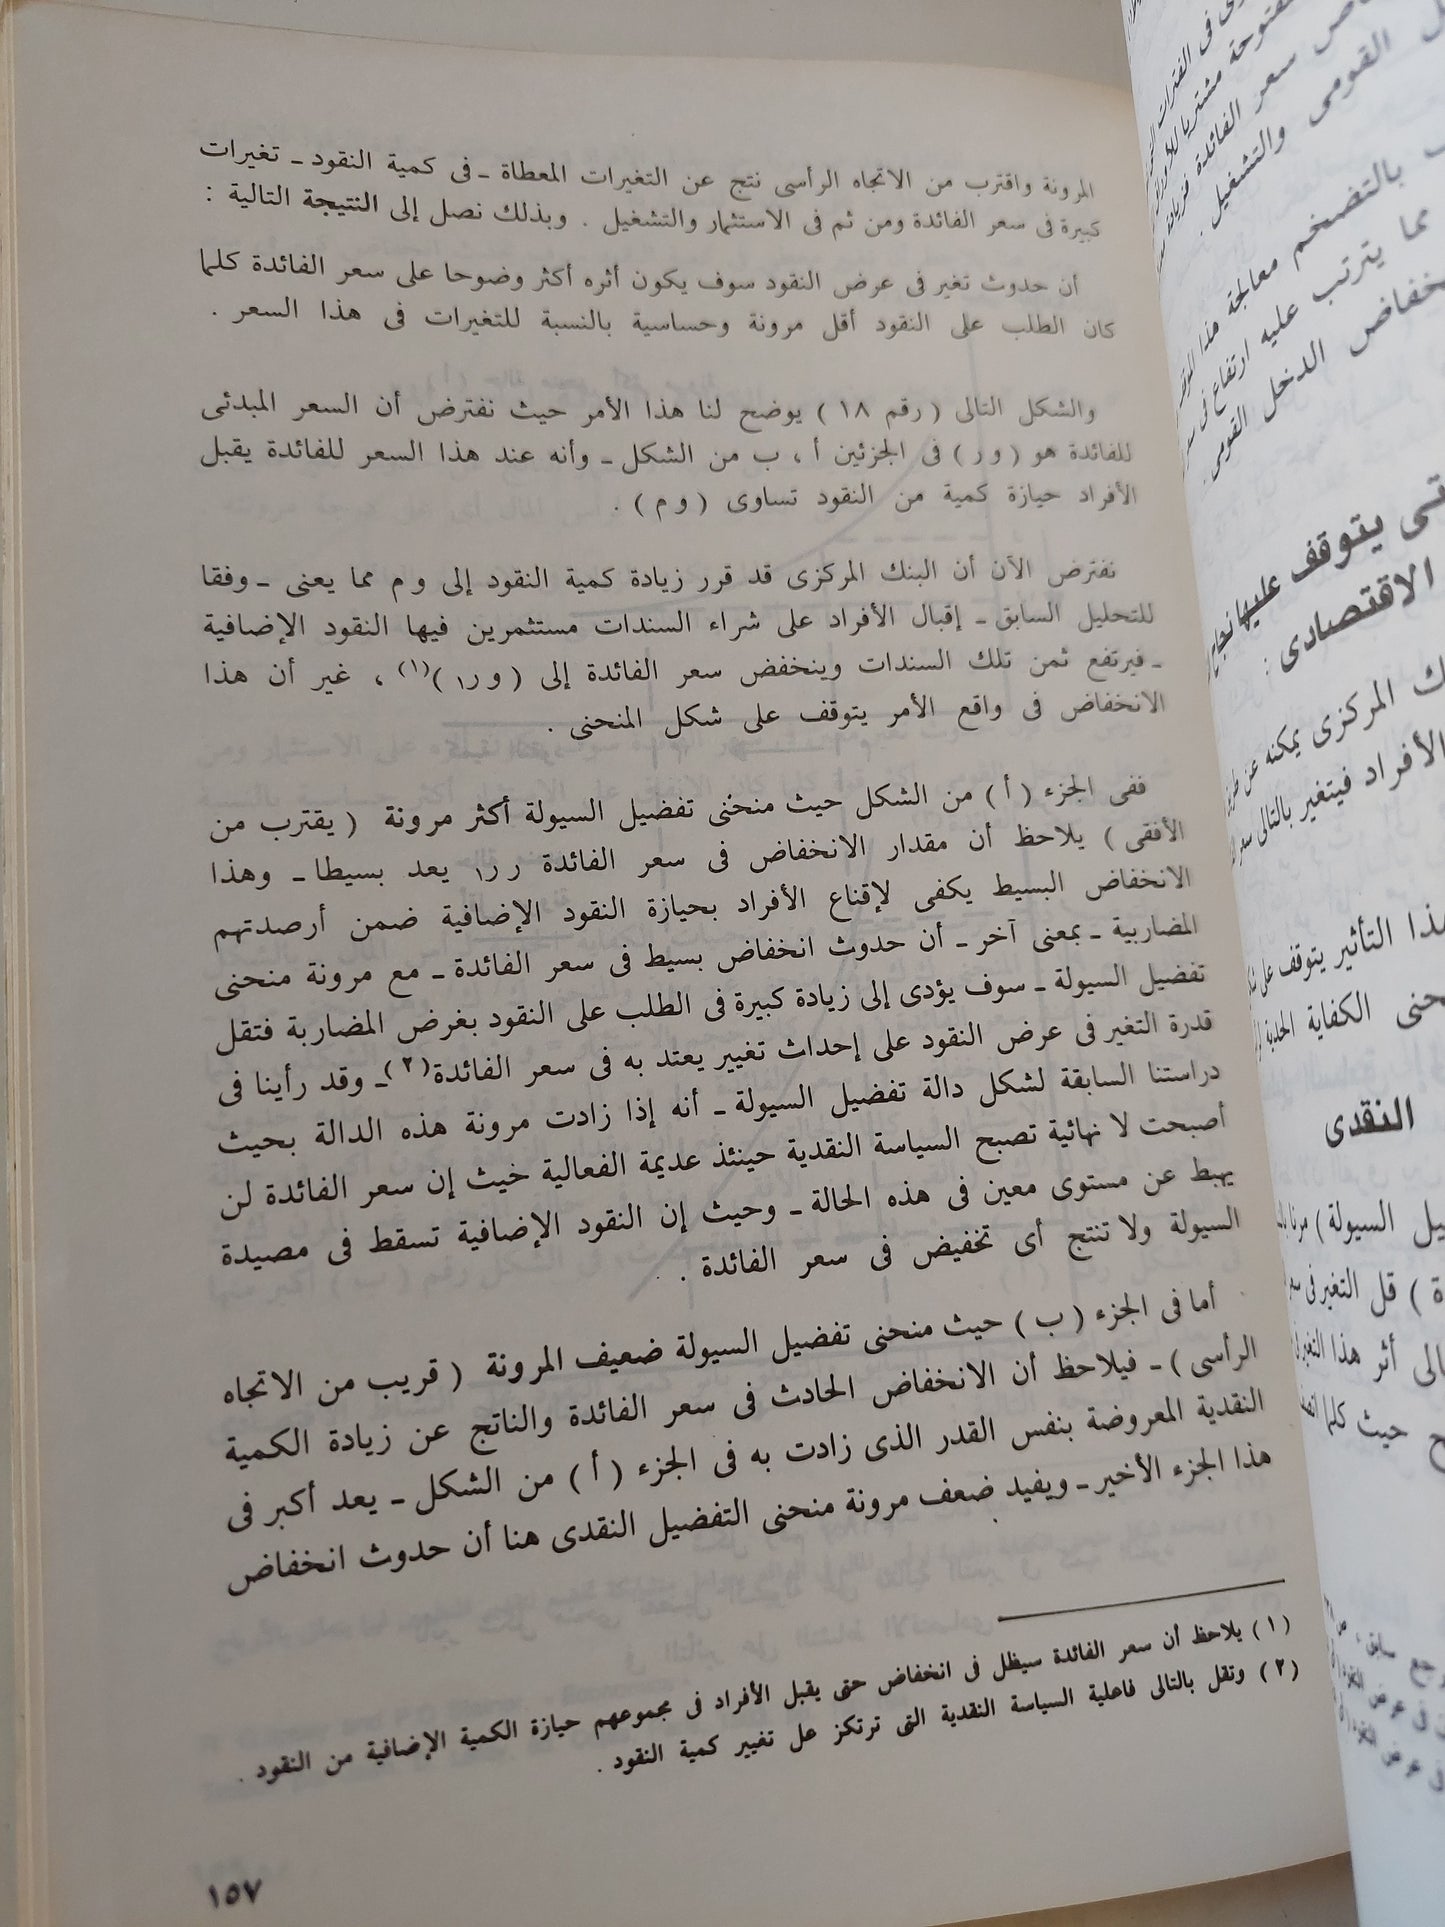 المرونة واقترب من الاتجاه الرأسى نتج عن التغيرات المعطاة ـ فى كمية النقود ـ تغيرات
كبيرة فى سعر الفائدة ومن ثم فى الاستثمار والتشغيل . وبذلك نصل إلى النتيجة التالية :
أن حدوث تغير فى عرض النقود سوف يكون أثره أكثر وضوحا على سعر الفائدة كلما
كان الطلب على النقود أقل مرونة وحساسية بالنسبة للتغيرات فى هذا السعر .
والشكل التالى ( رقم ١٨ ) يوضح لنا هذا الأمر حيث نفترض أن السعر المبدئى
للفائدة هو ( و ر ) فى الجزئين أ ، ب من الشكل ـ وأنه عند هذا السعر للفائدة يقبل
الأفراد حيازة كمية من النقود تساوى ( و م ) .
نفترض الآن أن البنك المركزى قد قرر زيادة كمية النقود إلى و م مما يعنى ـ وفقا
للتحليل السابق ـ إقبال الأفراد على شراء السندات مستثمرين فيها النقود الإضافية
ـ فيرتفع ثمن تلك السندات وينخفض سعر الفائدة إلى ( و ر١ )(١) ، غير أن هذا
الانخفاض فى واقع الأمر يتوقف على شكل المنحنى .
ففى الجزء ( أ ) من الشكل حيث منحنى تفضيل السيولة أكثر مرونة ( يقترب من
الأفقى ) يلاحظ أن مقدار الانخفاض فى سعر الفائدة ر ر١ يعد بسيطا ـ وهذا
الانخفاض البسيط يكفى لإقناع الأفراد بحيازة النقود الإضافية ضمن أرصدتهم
المضاربية ـ بمعنى آخر ـ أن حدوث انخفاض بسيط فى سعر الفائدة ـ مع مرونة منحنى
تفضيل السيولة ـ سوف يؤدى إلى زيادة كبيرة فى الطلب على النقود بغرض المضاربة فتقل
قدرة التغير فى عرض النقود على إحداث تغيير يعتد به فى سعر الفائدة(٢) ـ وقد رأينا فى
دراستنا السابقة لشكل دالة تفضيل السيولة ـ أنه إذا زادت مرونة هذه الدالة بحيث
أصبحت لا نهائية تصبح السياسة النقدية حينئذ عديمة الفعالية خيث إن سعر الفائدة لن
يهبط عن مستوى معين فى هذه الحالة ـ وحيث إن النقود الإضافية تسقط فى مصيدة
السيولة ولا تنتج أى تخفيض فى سعر الفائدة .
أما فى الجزء ( ب ) حيث منحنى تفضيل السيولة ضعيف المرونة ( قريب من الاتجاه
الرأسى ) ـ فيلاحظ أن الانخفاض الحادث فى سعر الفائدة والناتج عن زيادة الكمية
النقدية المعروضة بنفس القدر الذى زادت به فى الجزء ( أ ) من الشكل ـ يعد أكبر فى
هذا الجزء الأخير ـ ويفيد ضعف مرونة منحنى التفضيل النقدى هنا أن حدوث انخفاض
( ١ ) يلاحظ أن سعر الفائدة سيظل فى انخفاض حتى يقبل الأفراد فى مجموعهم حيازة الكمية الإضافية من النقود .
( ٢ ) وتقل بالتالى فاعلية السياسة النقدية التى ترتكز عل تغيير كمية النقود .
١٥٧
سعر الفائدة
القومى والتشغيل .
بالتضخم معالجة هذا
مما يترتب عليه ارتفاع فى
الدخل القومى
يتوقف عليها نجاح
الاقتصادى :
المركزى يمكنه عن
الأفراد فيتغير بالتالى سعر
التأثير يتوقف على
الكفاية الحدية
النقدى
السيولة ) مرنا
) قل التغير فى
أثر هذا التغير
حيث كلما